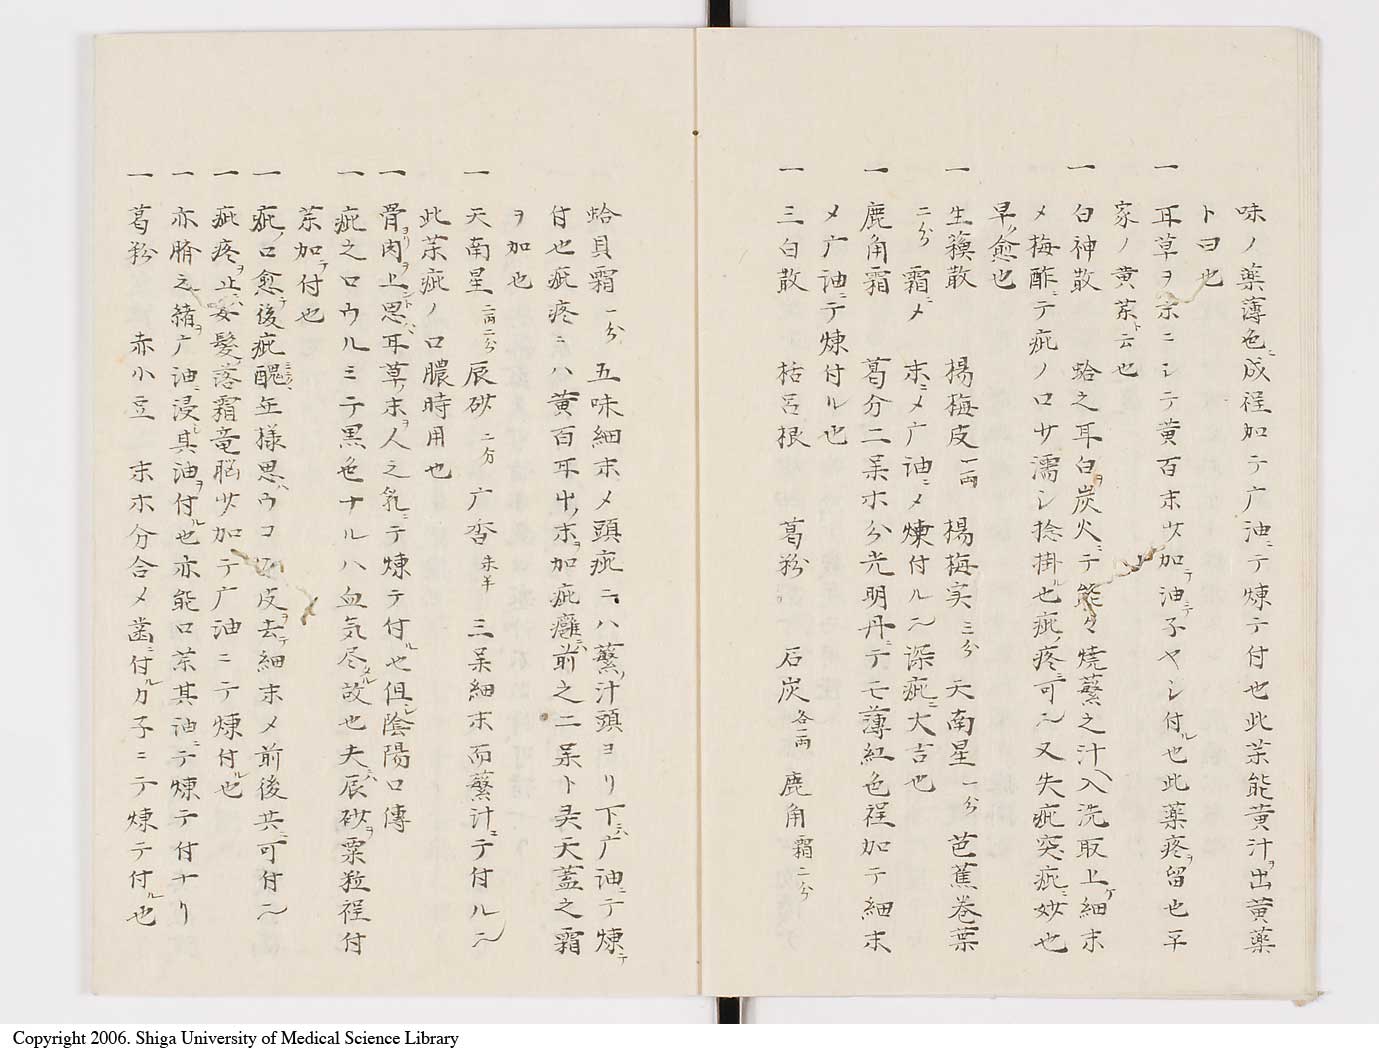 味ノ薬薄色ニ成程加テ广油ニテ煉テ付也此茶能黄汁ヲ出黄薬
ト曰也
一 耳草ヲ末ニシテ黄百末少加テ油ニテ子ヤシ付ル也此薬疼ヲ留也平
家ノ黄茶ト云也
一 白神散 蛤之耳白ヲ炭火ニテ能々焼蘩之汁入洗取上ケ細末
メ梅酢ニテ疵ノロサ濡シ捻掛ル也疵ノ疼ニ可〆又失疵突疵ニ妙也
早ノ愈也
一 生籏散 楊梅皮一両 楊梅実三分 天南星一分 芭蕉巻葉
二分 霜ニメ 末ニメ广油ニメ煉付ル〆深疵ニ大吉也
一 鹿角霜 葛分二呆ホ分光明丹ニテモ薄紅色程加テ細末
メ广油ニテ煉付ル也
一 三白散 栝呂根 葛粉 石炭各一両 鹿角霜二分
蛤貝霜一分 五味細末メ頭疵ニハ蘩ノ汁頭ヨリ下ニハ广油ニテ煉テ
付也疵疼ニハ黄百耳草ノ末ヲ加疵癰ニハ前之二呆ト天蓋之霜
ヲ加也
一 天南星一両二分 辰砂二分 广香朱半 三呆細末而蘩汁ニテ付ル〆
此茶疵ノ口膿時用也
一 骨肉ヨリヲ上ント思ハ耳草ノ末ヲ人之乳ニテ煉テ付ル也但シ陰陽口傳
一 疵之口ウルミテ黒色ナルハ血気尽タル故也夫ニハ辰砂ヲ粟粒程付
茶加テ付也
一 疵ノ口愈テ後疵醜ミニクヽ無様思ハウコ皮ヲ去テ細末メ前後共ニ可付〆
一 疵疼ヲ止ニハ女髪ノ落霜竜脳少加テ广油ニテ煉付ル也
一 亦臍之緒ヲ广油ニ浸シ其油ヲ付ル也亦能口茶其油ニテ煉テ付ナリ
一 葛粉 赤小豆 末ホ分合メ菌ニ付ルカ子ニテ煉テ付ル也
Copyright 2006. Shiga University of Medical Science Library